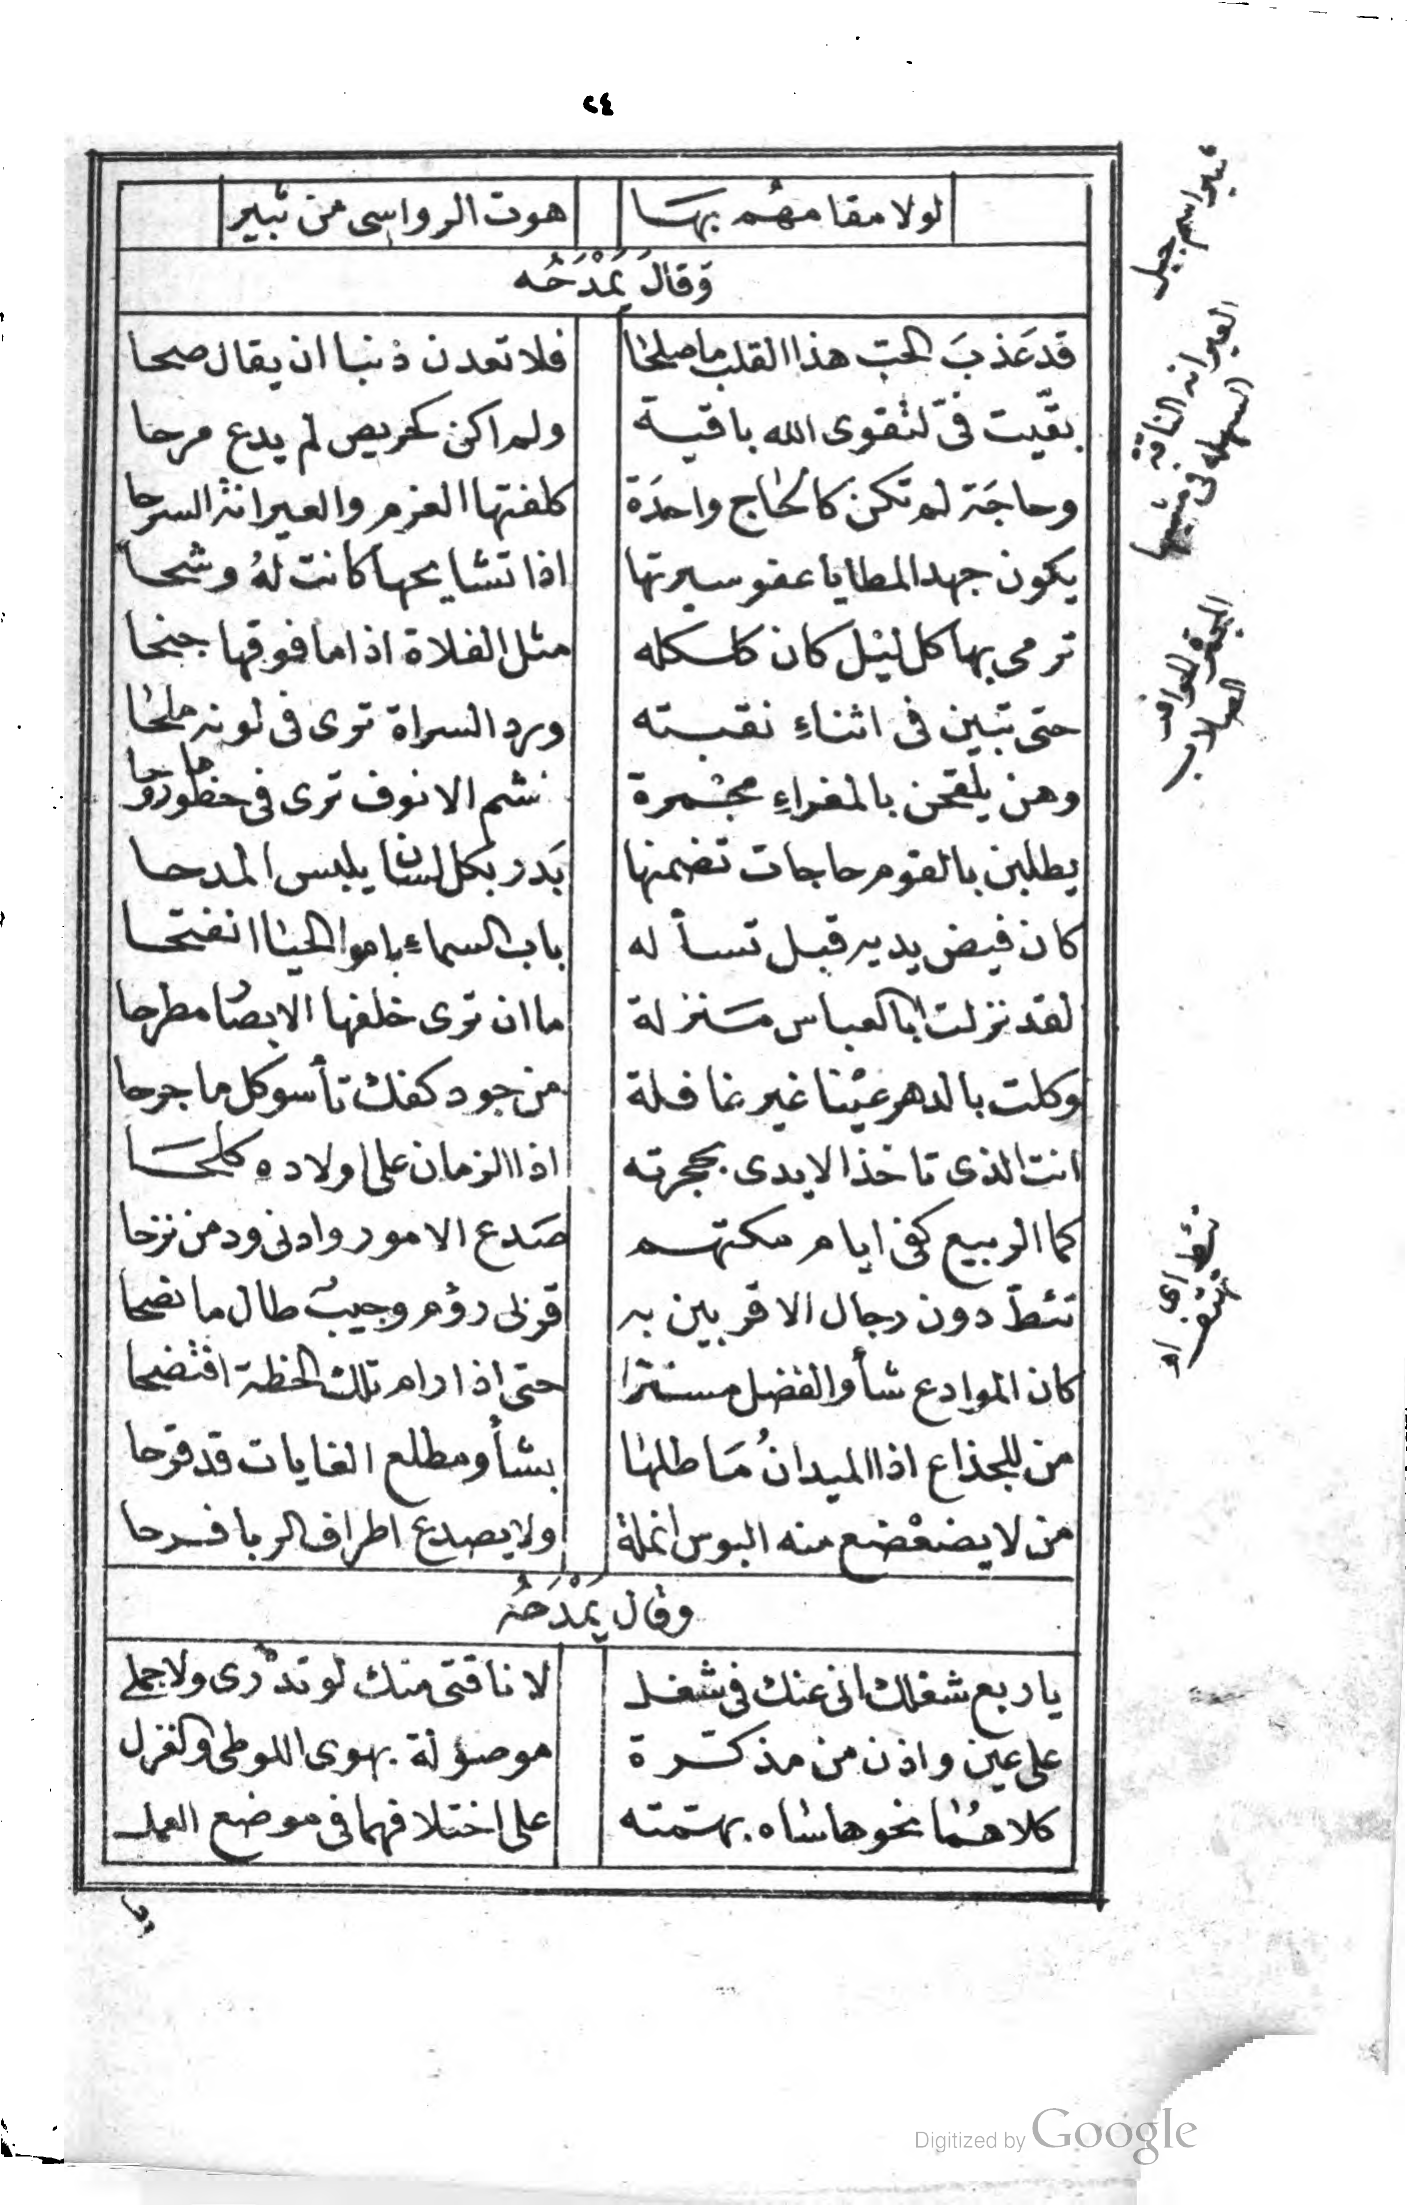 ٢٤
لولا مقامهُم بهَا هوت الرواسى من ثبير
وَقالَ يَمْدَحُه
قد عَذبَ الحب هذا القلب ما صلحا فلا تعدن ذنبا ان يقال صحا
بقّيت فىّ لتقوى الله باقية ولم اكن كحريص لم يدع مرحا
وحاجَة لم تكن كالحاج واحدَة كلفتها العزم والعيرانة السرحا
يكون جهد المطايا عفو سيرتها اذا تشايحها كانت لهُ وشحا
ترمى بها كل ليْل كان كلكله مثل الفلاة اذا ما فوقها جنحا
حتى تبين فى اثناءِ نقبته ورد السراة ترى فى لونه ملحا
وهن يلْقحن بالمغراءِ مجمرة شم الانوف ترى فى خطوها روحا
يطلبن بالقوم حاجات تضمنها بَدر بكل لسان يلبس المدحا
كان فيض يديه قبل تسأله باب السماء باموا الحيا انفتحا
لقد نزلت ابا العباس مَنزلة ما ان ترى خلفها الابصار مطرحا
وكلت بالدهر عيْنا غير غافلة من جود كفك تأسو كل ما جرحا
انت الذى تاخذ الايدى بحجزته اذا الزمان على اولاده كلحَا
كما الربيع كفى ايام مكتهم صَدع الامور وادنى ود من نزحا
تئطّ دون رجال الاقربين به قربى رؤم وجيبُ طال ما نصحا
كان الموادع شأو الفضل مستترا حتى اذا رام تلك الخطة افتضحا
من للجذاع اذا الميدانُ مَاطلها بشأو مطلع الغايات قد قرحا
من لا يضعْضع منه البوس انملة ولا يصدع اطراف الربا فرحا
وقال يَمْدَحُه
يا ربع شغلك انى عنك فى شغل لا ناقتى منك لو تدْرى ولا جملى
على عين واذن من مذكّرة موصولة بهوى اللوطى والغزل
كلاهُما نحوها سام بهمّته على اختلافهما فى موضع العمل
ثبير اسم جبل
العيرانه الناقة
السهله فى مشيها
المجمرة الحوافر
الصلاب
تئط اى